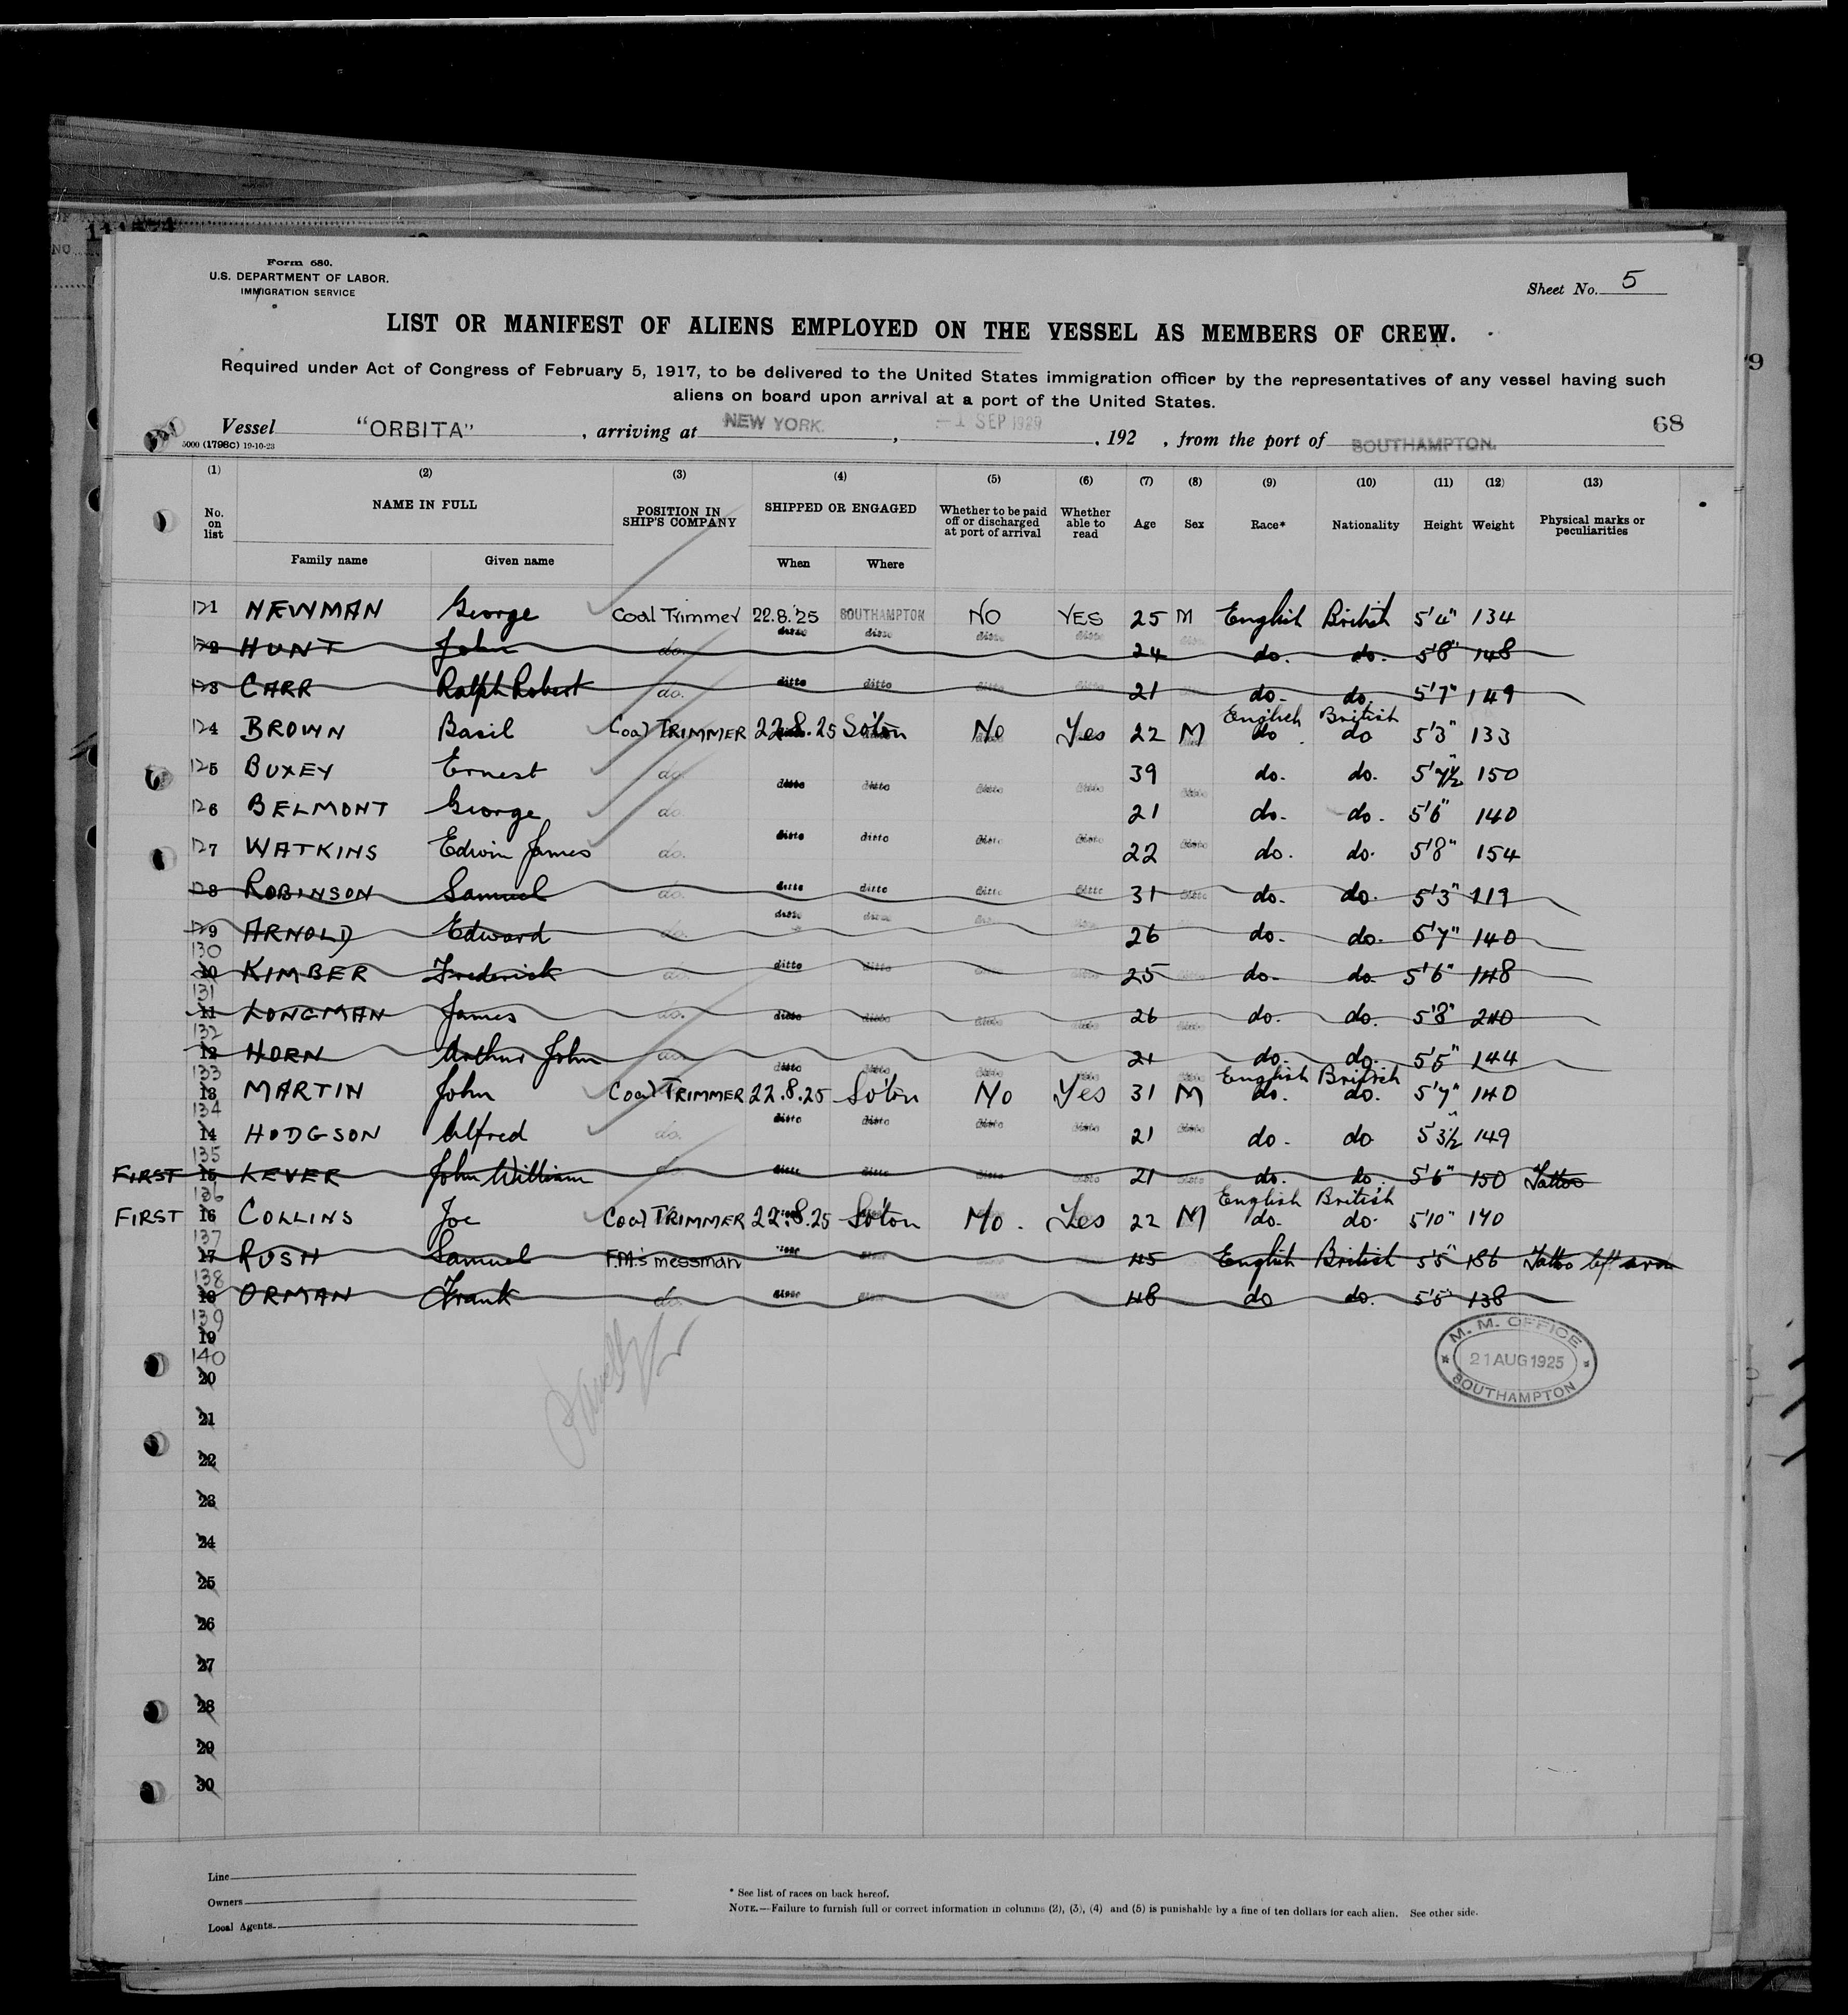 Form 680.
U.S. DEPARTMENT OF LABOR.
IMMIGRATION SERVICE
Sheet No. 5
LIST OR MANIFEST OF ALIENS EMPLOYED ON THE VESSEL AS MEMBERS OF CREW.
Required under Act of Congress of February 5, 1917, to be delivered to the United States immigration officer by the representatives of any vessel having such
aliens on board upon arrival at a port of the United States.
68
Vessel "ORBITA" , arriving at NEW YORK. , -1 SEP 1929 , 192 , from the port of SOUTHAMPTON.
5000 (1798C) 19-10-23
(1) (2) (3) (4) (5) (6) (7) (8) (9) (10) (11) (12) (13)
No. on list NAME IN FULL POSITION IN SHIP'S COMPANY SHIPPED OR ENGAGED Whether to be paid off or discharged at port of arrival Whether able to read Age Sex Race* Nationality Height Weight Physical marks or peculiarities
Family name Given name When Where
121 NEWMAN George Coal Trimmer 22.8.25 SOUTHAMPTON NO YES 25 M English British 5'4" 134
122 HUNT John do. ditto ditto ditto ditto 24 ditto do. do. 5'8" 148
123 CARR Ralph Robert do. ditto ditto ditto ditto 21 do. do. 5'7" 149
English British
124 BROWN Basil Coal TRIMMER 22.8.25 So'ton No Yes 22 M do. do 5'3" 133
125 BUXEY Ernest do. ditto ditto ditto ditto 39 ditto do. do. 5'7½" 150
126 BELMONT George do. 21 do. do. 5'6" 140
127 WATKINS Edwin James do. ditto ditto ditto ditto 22 ditto do. do. 5'8" 154
128 ROBINSON Samuel do. ditto ditto ditto ditto 31 ditto do. do. 5'3" 119
129 ARNOLD Edward do. ditto ditto 26 do. do. 5'7" 140
130
10 KIMBER Frederick do. ditto ditto 25 do. do. 5'6" 148
131
11 LONGMAN James do. ditto ditto ditto ditto 26 ditto do. do. 5'8" 240
132
12 HORN Arthur John do. ditto ditto ditto ditto 21 do. do. 5'5" 144
133 English British
13 MARTIN John Coal TRIMMER 22.8.25 So'ton No Yes 31 M do. do. 5'7" 140
134
14 HODGSON Alfred do. ditto ditto ditto ditto 21 ditto do. do 5'3½" 149
135
FIRST 15 KEVER John William ditto ditto ditto ditto 21 ditto do. do. 5'6" 150 Tattoo
136 English British
FIRST 16 COLLINS Joe Coal TRIMMER 22.8.25 So'ton No. Yes 22 M do. do. 5'10" 140
137
17 RUSH Samuel F.M.'s messman 45 English British 5'5" 186 Tattoo left arm
138
18 ORMAN Frank do. ditto ditto 48 do do. 5'5" 138
139
19
140
20
21
22
23
24
25
26
27
28
29
30
M. M. OFFICE
21 AUG 1925
SOUTHAMPTON
Line
Owners
Local Agents.
* See list of races on back hereof.
NOTE.—Failure to furnish full or correct information in columns (2), (3), (4) and (5) is punishable by a fine of ten dollars for each alien. See other side.